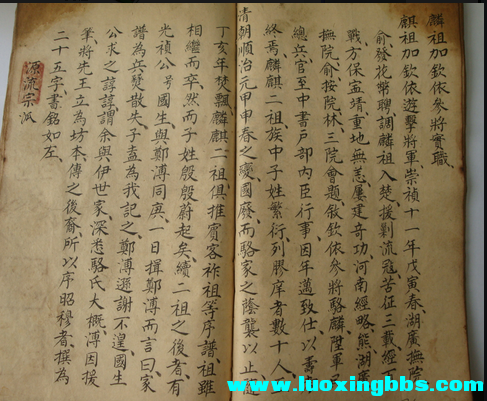 麟祖加欽依參將實職、
麒祖加欽依遊擊將軍崇禎十一年戊寅春湖廣撫院
俞發花幣聘調麟麒入楚、援剿流寇苦征三載經
戰方保孟靖、重地無恙、屢建奇功、河南經略、熊湖廣
撫院俞按院林、三院會題、敘欽依參將駱麟陞軍
總兵官至中書戶部內臣行事、因年邁致仕以壽
終焉、麟麒二祖族中子姓繁衍列膠庠者數十人
清朝順治元甲申春之變國廢、而駱家之蔭襲以止
丁亥年焚飄麟麒二祖俱推賓客祚祖等序譜、祖雖
相繼而卒、然而子姓殷殷蔚起矣、續二祖之後者、有
光禎公号國生、與鄭溥同庚、一日揖鄭溥而言曰、家
譜為兵燹散失、子盍為我記之、鄭溥遜謝不遑、國生
公求之諄諄謂余與伊世家深悉駱氏大概、溥因援
筆將先王立為坊本傳之後裔、所以序昭穆者、撰為
二十五字、書銘如左、
源流宗派
www.luoxingbbs.com